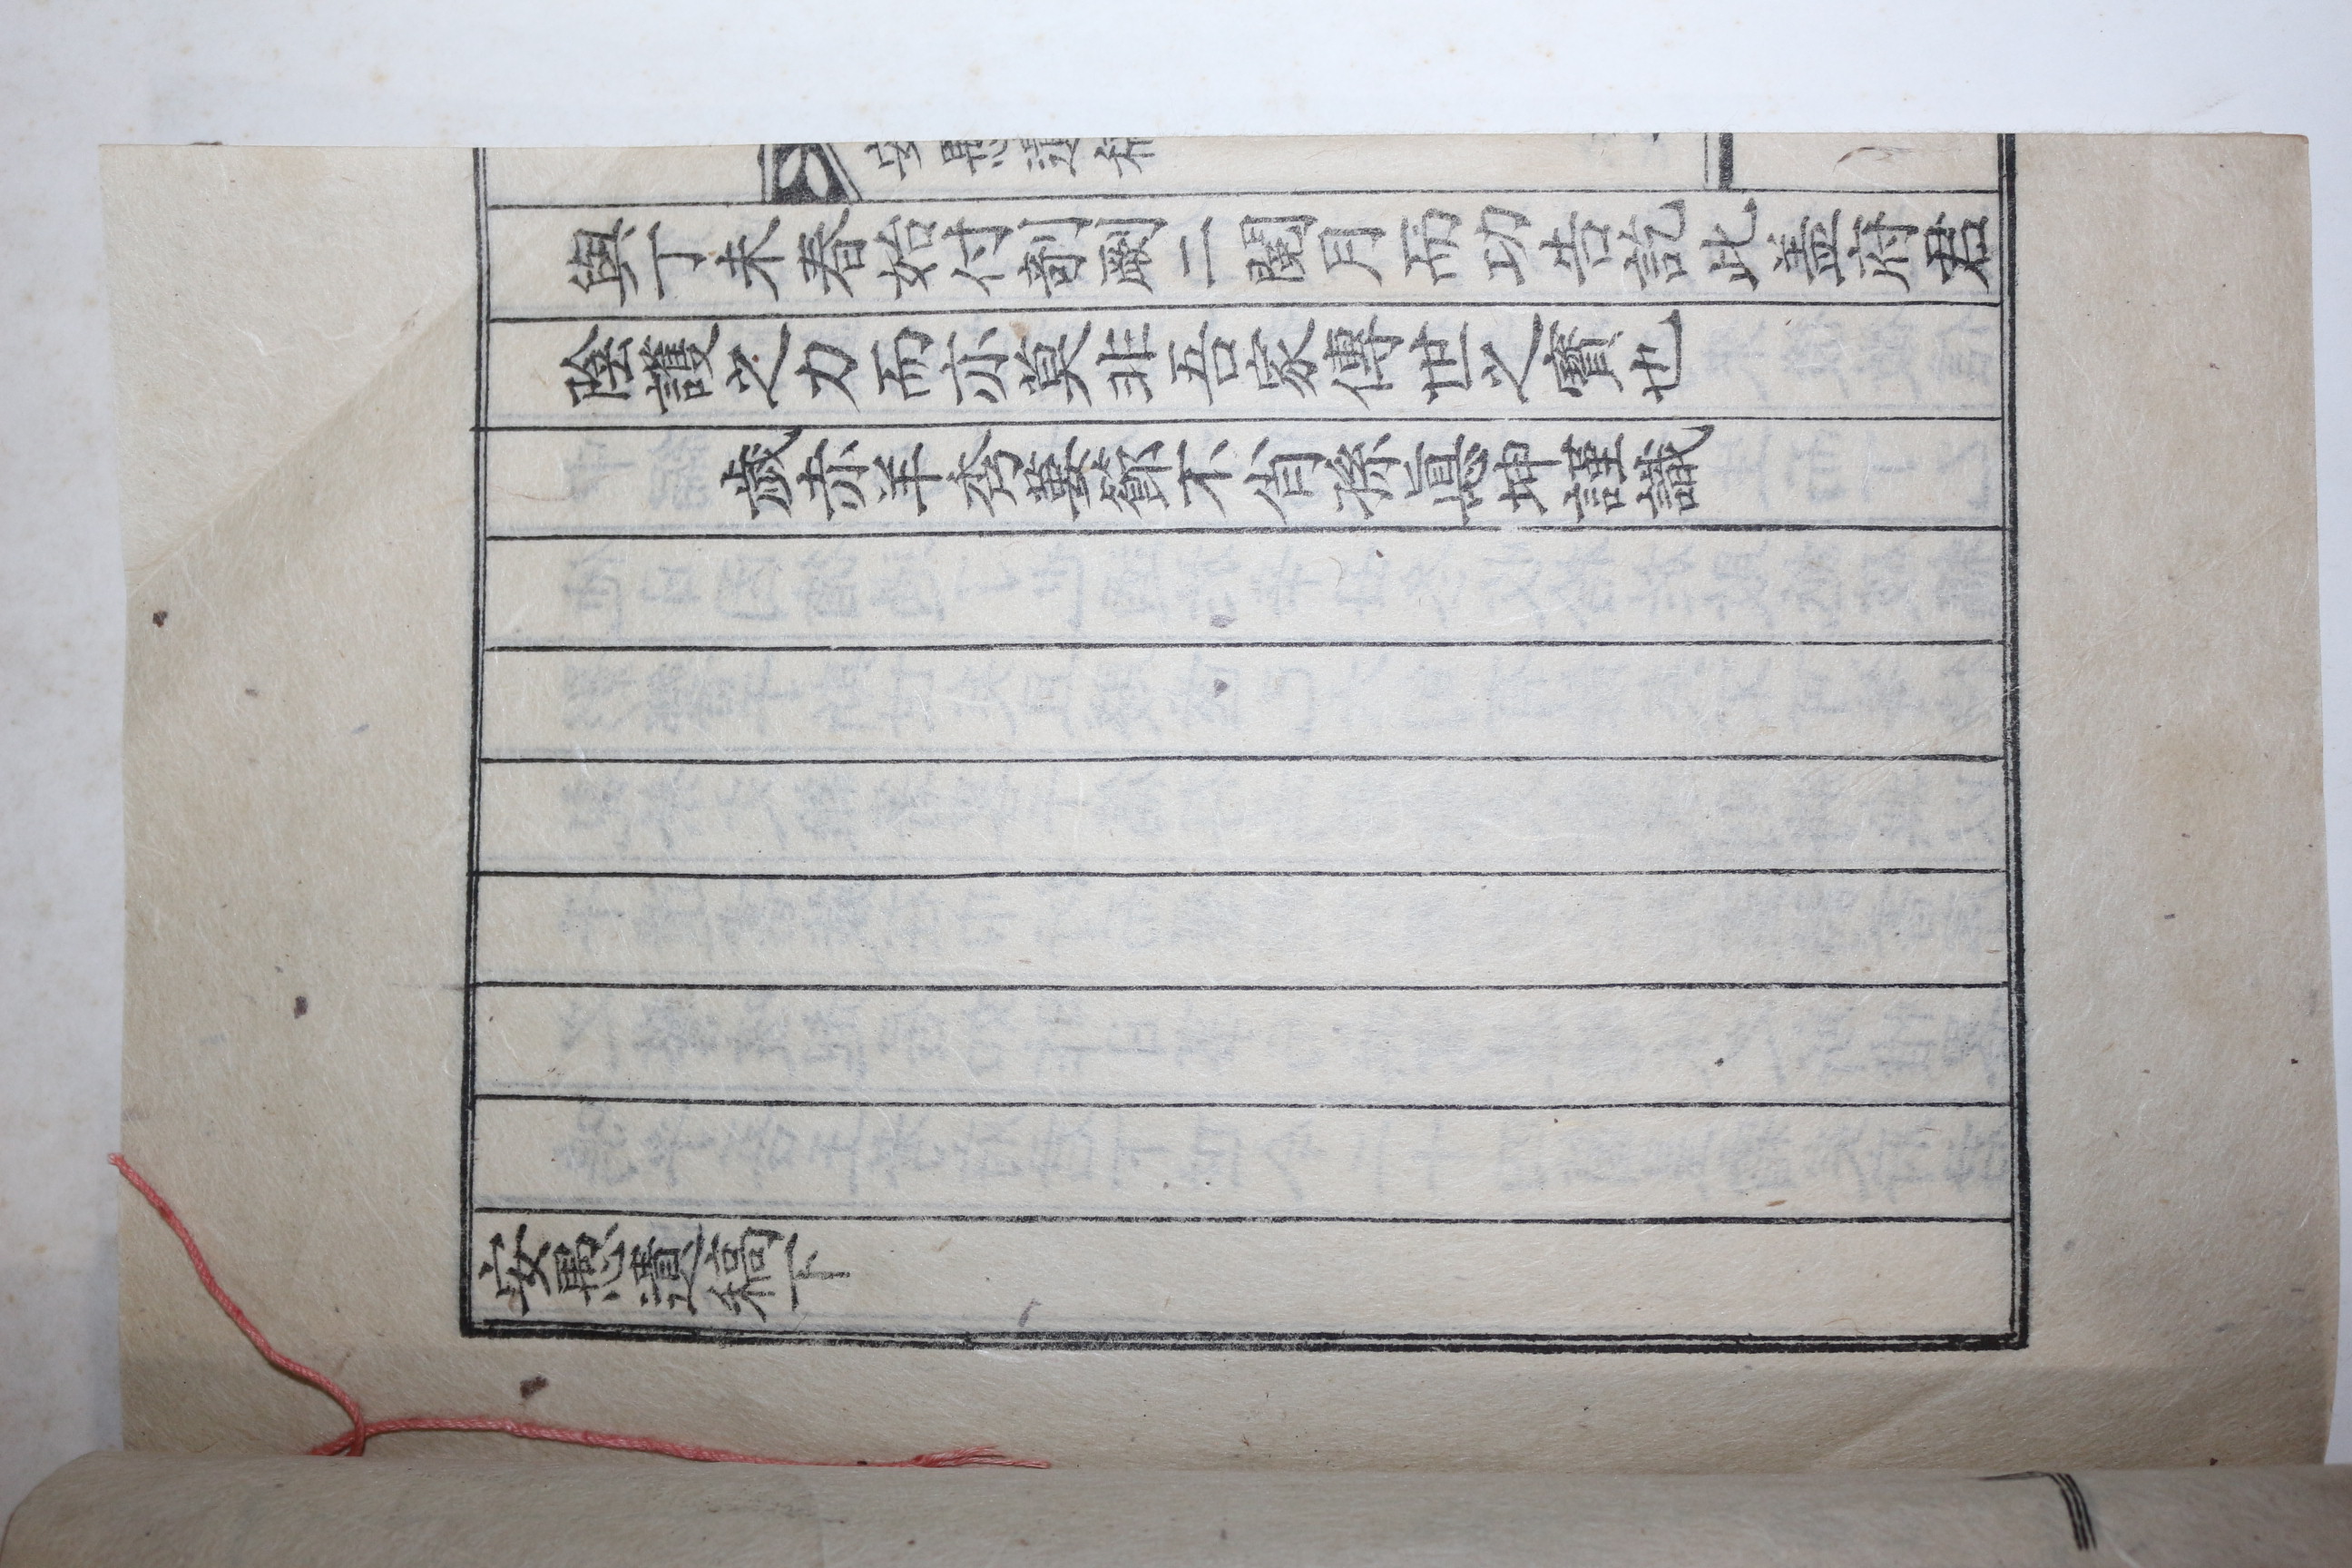 安愚遺稿
與丁未春始付剞劂二閱月而功告訖此盖府君
陰護之力而亦莫非吾家傳世之寶也
歲赤羊秀葽節不肖孫惪坤謹識
安愚遺稿下